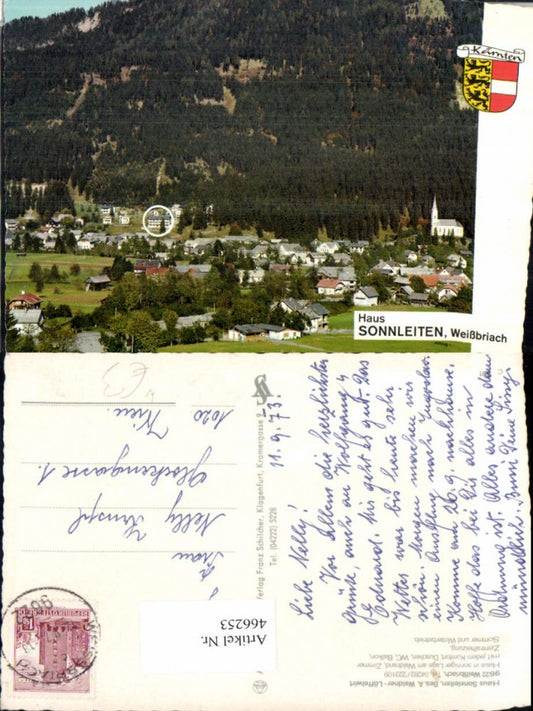 Kärnten
Haus
SONNLEITEN, Weißbriach
11.9.73.
Liebe Nelly!
Vor Allem die herzlichsten
Grüße, auch an Wolfgang u.
Eduard. Mir geht es gut. Das
Wetter war bis heute sehr
schön. Morgen machen wir
einen Ausflug nach Jugoslav.
Komme am 20.9. nachhause.
Hoffe das bei Euch alles in
Ordnung ist. Alles andere dann
mündlich. Bussi Deine
Frau
Nelly
Glockengasse 1.
1020 Wien.
Verlag Franz Schilcher, Klagenfurt, Kramergasse
Tel. (04222) 5228
Haus Sonnleiten, Bes. A. Waldner - Löffelwirt
9622 Weißbriach, Tel. 04286/223109
Haus in sonniger Lage am Waldrand, Zimmer
mit jedem Komfort, Duschen, WC, Balkon,
Zentralheizung.
Sommer und Winterbetrieb.
REPUBLIK ÖSTERREICH
Artikel Nr.
466253
€3